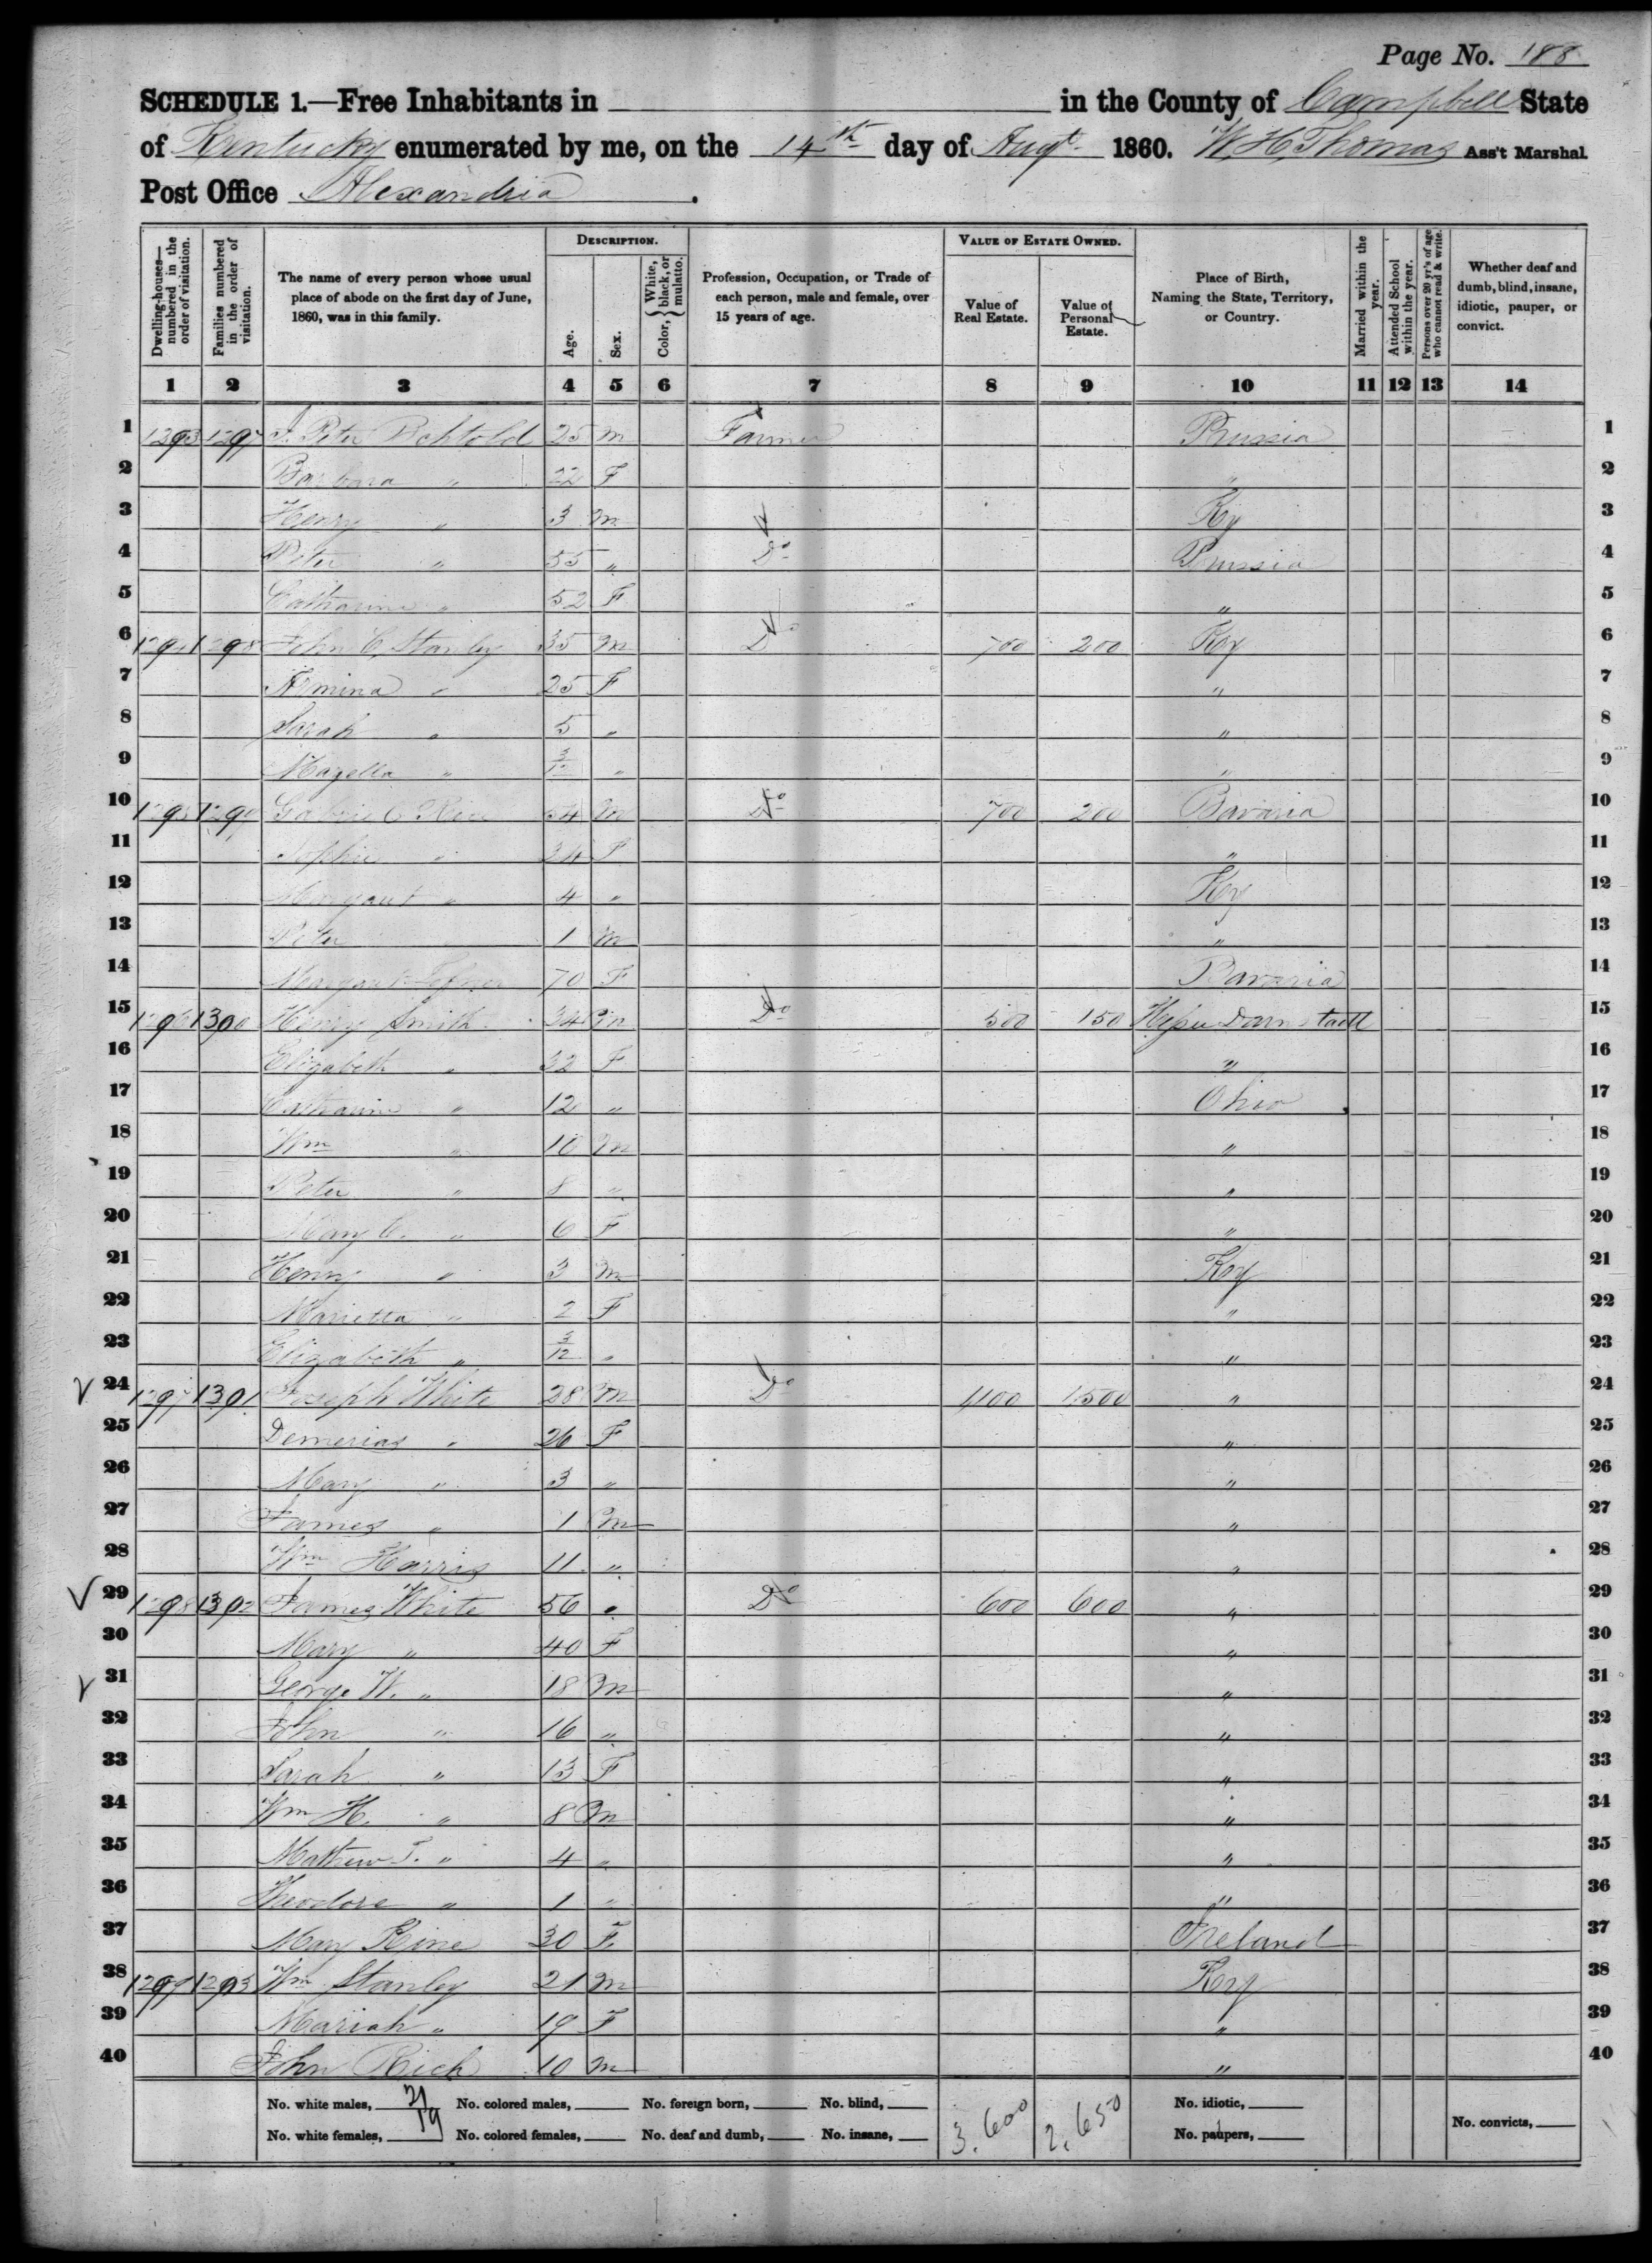 Page No. 188
SCHEDULE 1.—Free Inhabitants in in the County of Campbell State
of Kentucky enumerated by me, on the 14th day of Augt. 1860. W. H. Thomas Ass't Marshal.
Post Office Alexandria.
Dwelling-houses—numbered in the order of visitation.
Families numbered in the order of visitation.
The name of every person whose usual place of abode on the first day of June, 1860, was in this family.
DESCRIPTION.
Age.
Sex.
Color, { White, black, or mulatto.
Profession, Occupation, or Trade of each person, male and female, over 15 years of age.
VALUE OF ESTATE OWNED.
Value of Real Estate.
Value of Personal Estate.
Place of Birth, Naming the State, Territory, or Country.
Married within the year.
Attended School within the year.
Persons over 20 yr's of age who cannot read & write.
Whether deaf and dumb, blind, insane, idiotic, pauper, or convict.
1 2 3 4 5 6 7 8 9 10 11 12 13 14
1 1293 1297 J. Peter 25 m Farmer Prussia 1
2 Barbara " 22 F " 2
3 Henry " 3 m Ky 3
4 Peter " 55 " Do Prussia 4
5 Catharine " 52 F " 5
6 1294 1298 John C. Stanley 35 m Do 700 200 Ky 6
7 Armina " 25 F " 7
8 Sarah " 5 " " 8
9 Mazella " " " 9
10 1295 1299 54 m Do 700 200 Bavaria 10
11 Sophie " 34 F " 11
12 Margaret " 4 " Ky 12
13 Peter 1 m " 13
14 Margaret 70 F Bavaria 14
15 1296 1300 Henry Smith 34 m Do 500 150 Hesse Darmstadt 15
16 Elizabeth " 32 F " 16
17 Catharine " 12 " Ohio 17
18 Wm " 10 m " 18
19 Peter " 8 " " 19
20 Mary C. " 6 F " 20
21 Henry " 3 m Ky 21
22 Marietta " 2 F " 22
23 Elizabeth " 3/12 " " 23
24 1297 1301 Joseph White 28 m Do 1100 1500 " 24
25 Demerias " 26 F " 25
26 Mary " 3 " " 26
27 James " 1 m " 27
28 Wm Harris 11 " " 28
29 1298 1302 James White 56 " Do 600 600 " 29
30 Mary " 40 F " 30
31 George W. " 18 m " 31
32 John " 16 " " 32
33 Sarah " 13 F " 33
34 Wm H. " 8 m " 34
35 Mathew T. " 4 " " 35
36 Theodore " 1 " " 36
37 Mary Kine 30 F Ireland 37
38 1299 1293 Wm Stanley 21 m Ky 38
39 Mariah " 19 F " 39
40 John Rich 10 m " 40
No. white males, 21 No. colored males, No. foreign born, No. blind, 3,600 2,650 No. idiotic, No. convicts,
No. white females, 19 No. colored females, No. deaf and dumb, No. insane, No. paupers,